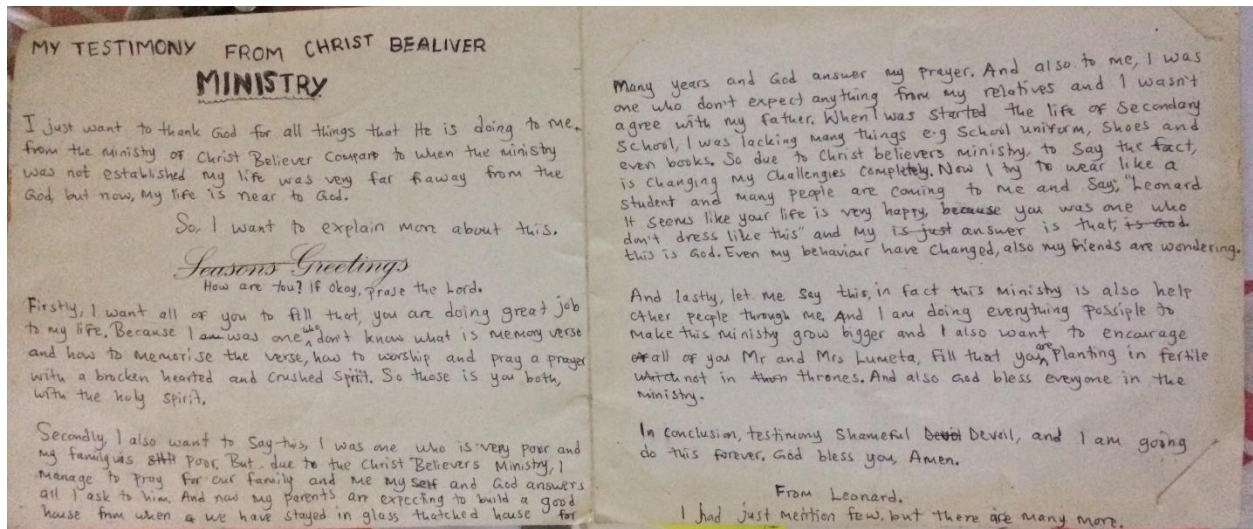 MY TESTIMONY FROM CHRIST BEALIVER
MINISTRY
I just want to thank God for all things that He is doing to me.
from the ministry of Christ Believer Compare to when the ministry
was not established my life was very far faway from the
God, but now, my life is near to God.
So, I want to explain more about this.
Seasons Greetings
How are You? If okay, prase the Lord.
Firstly, I want all of you to fill that, you are doing great job
to my life. Because I am was one who don't know what is memory verse
and how to memorise the verse, how to worship and pray a prayer
with a brocken hearted and Crushed Spirit. So those is you both,
with the holy spirit.
Secondly, I also want to Say this, I was one who is very poor and
my family is poor. But due to the Christ Believers Ministry, I
manage to pray for our family and me my self and God answers
all I ask to him. And now my parents are expecting to build a good
house from when we have stayed in glass thatched house for
Many years and God answer my prayer. And also to me, I was
one who don't expect anything from my relatives and I wasn't
agree with my father. When I was started the life of Secondary
School, I was lacking many things e.g School uniform, Shoes and
even books. So due to Christ believers ministry, to Say the fact,
is changing my Challengies completely. Now I try to wear like a
student and many people are coming to me and Say; "Leonard
It seems like your life is very happy, because you was one who
don't dress like this" and my is just answer is that, is God
this is God. Even my behaviour have Changed, also my friends are wondering.
And lastly, let me Say this, in fact this ministry is also help
other people through me. And I am doing everything possiple to
make this ministry grow bigger and I also want to encourage
all of you Mr and Mrs Lumeta, fill that you are Planting in fertile
which not in thrones. And also God bless everyone in the
ministry.
In conclusion, testimony Shameful Devoil, and I am going
do this forever. God bless you, Amen.
From Leonard.
I had just mention few, but there are many more.